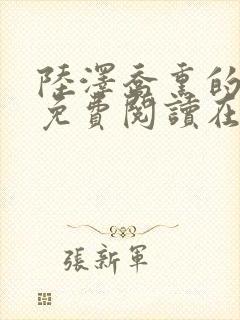 陸澤喬熏的
免費閱讀在
張新軍